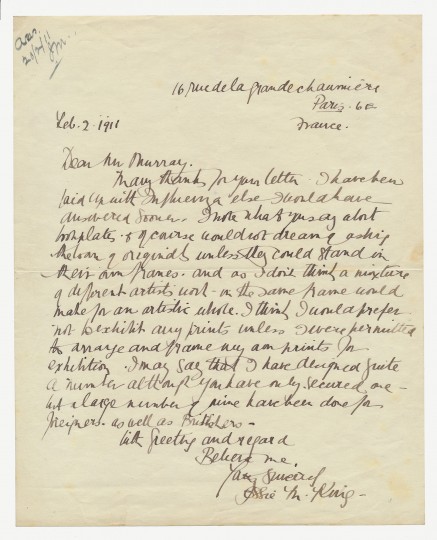 16 rue de la grande chaumière
Paris. 6E
France.
Feb. 2. 1911
Dear Mr Murray.
Many thanks for your letter. I have been
laid up with Influenza else I would have
answered sooner. I note what you say about
bookplates. & of course would not dream of asking
the loan of originals unless they could stand in
their own frames. and as I don't think a mixture
of different artists work - in the same frame would
make for an artistic whole. I think I would prefer
not to exhibit any prints unless I were permitted
to arrange and frame my own prints for
exhibition. I may say that I have designed quite
a number although you have only secured one -
but a large number of mine have been done for
foreigners. as well as Britishers -
With Greeting and regard
Believe me.
Yours Sincerely
Jessie M. King -